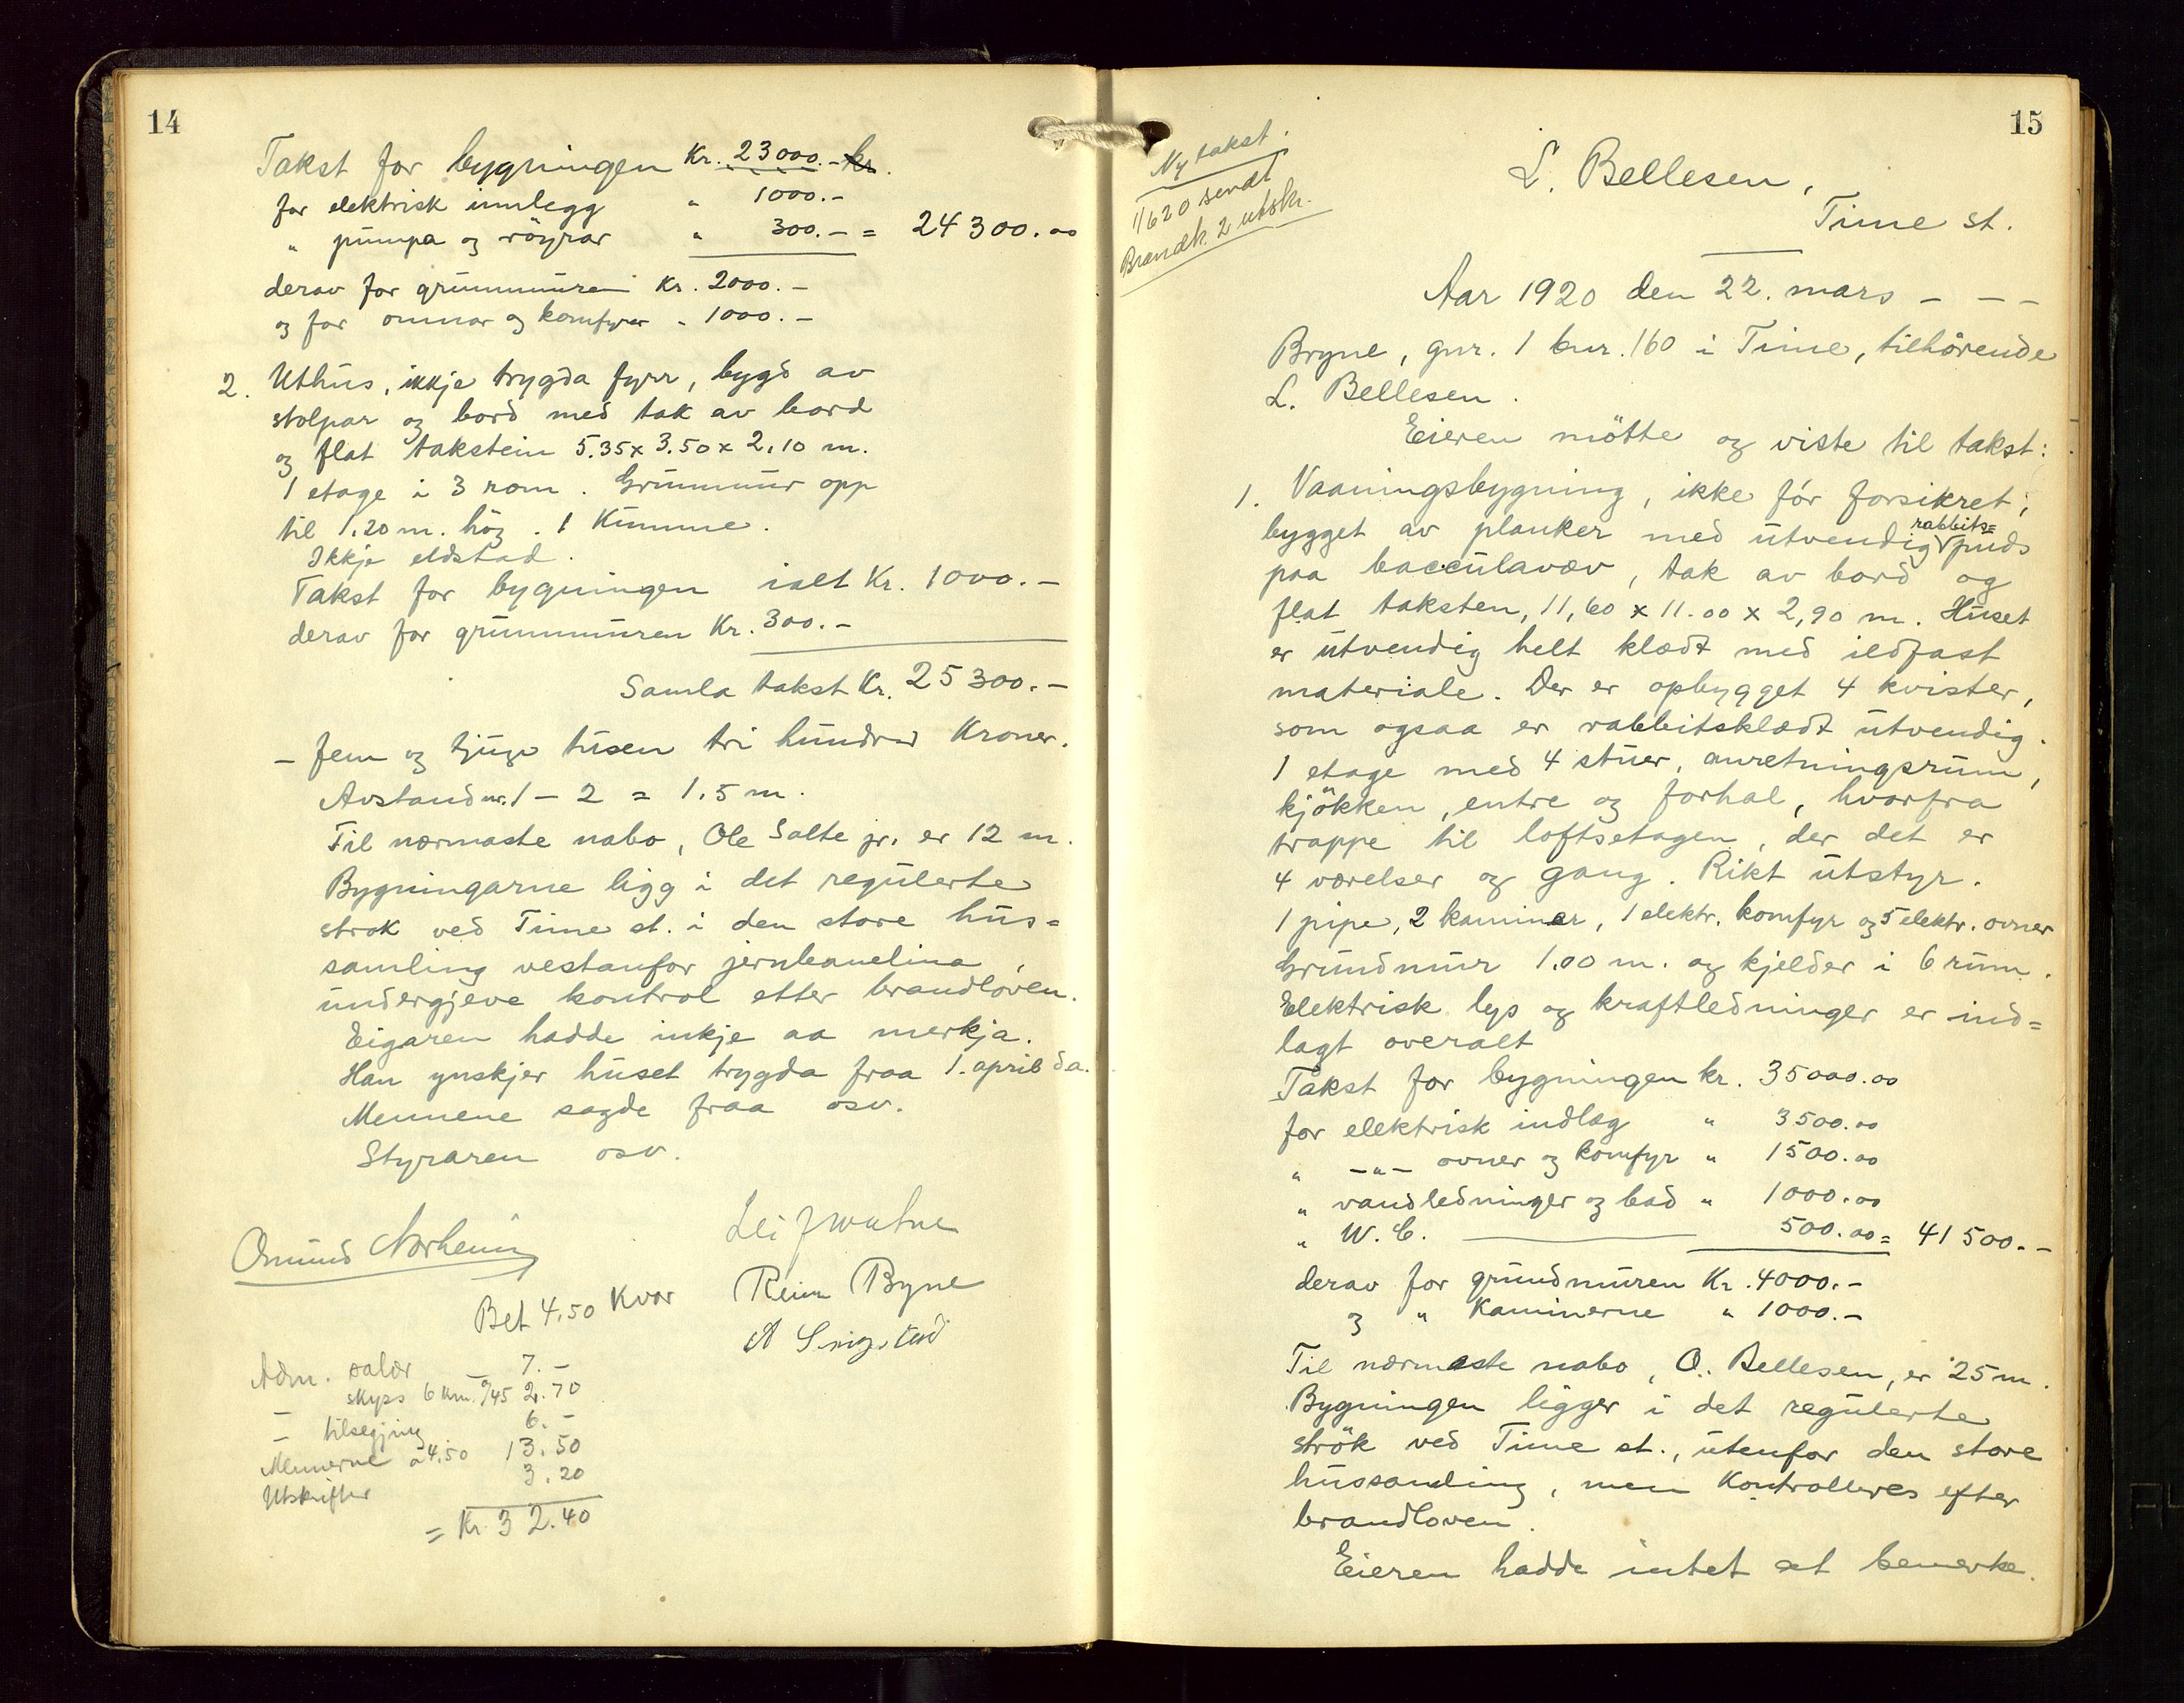 14
Takst for bygningen Kr. 23000.- kr.
for elektrisk innlegg " 1000.-
" pumpa og röyrar " 300.- = 24300.00
derav for grunnmuren Kr. 2000.-
og for omnar og komfyrar " 1000.-
2. Uthus, ikkje trygda fyrr, bygd av
stolpar og bord med tak av bord
og flat takstein 5.35 x 3.50 x 2.10 m.
1 etage i 3 rom. Grunnmur opp
til 1.20 m. høg. 1 Kumme.
Ikkje eldstad.
Takst for bygningen ialt Kr. 1000.-
derav for grunnmuren Kr. 300.-
Samla takst Kr. 25300.-
- fem og tjuge tusen tri hundrad Kroner.
Avstand nr. 1 - 2 = 1.5 m.
Til nærmaste nabo, Ole Salte jr. er 12 m.
Bygningarne ligg i det regulerte
strok ved Time st. i den store hus=
samling vestanfor jernbanelina,
undergjeve kontrol etter brandloven.
Eigaren hadde inkje aa merkja.
Han ynskjer huset trygda fraa 1. april d.a.
Mennene sagde fraa osv.
Styraren osv.
Omund Norheim
Leif Watne
Reim Bryne
Bet 4.50 Kvar
Adm. salær - 7.-
- skyss 6 km. a/45 2.70
- tilsegjing 6.-
Mennerne a 4.50 13.50
Utskrifter 3.20
= Kr. 32.40
15
Ny takst.
1/6 20 sendt
Brandk. 2 utskr.
L. Bellesen,
Time st.
Aar 1920 den 22. mars - - -
Bryne, gnr. 1 bnr. 160 i Time, tilhörende
L. Bellesen.
Eieren mötte og viste til takst:
1. Vaaningsbygning, ikke för forsikret,
bygget av planker med utvendig rabbits= puds
paa bacculavæv, tak av bord og
flat taksten, 11,60 x 11.00 x 2,90 m. Huset
er utvendig helt klædt med ildfast
materiale. Der er opbygget 4 kvister,
som ogsaa er rabbitsklædt utvendig.
1 etage med 4 stuer, anretningsrum,
kjökken, entre og forhal, hvorfra
trappe til loftsetagen, der det er
4 værelser og gang. Rikt utstyr.
1 pipe, 2 kaminer, 1 elektr. komfyr og 5 elektr. ovner
Grundmur 1.00 m. og kjelder i 6 rum.
Elektrisk lys og kraftledninger er ind=
lagt overalt
Takst for bygningen kr. 35000.00
for elektrisk indlæg " 3500.00
" -"- ovner og komfyr " 1500.00
" vandledninger og bad " 1000.00
" W.C. 500.00 = 41500.-
derav for grundmuren Kr. 4000.-
og " Kaminerne " 1000.-
Til nærmaste nabo, O. Bellesen, er 25 m.
Bygningen ligger i det regulerte
strök ved Time st., utenfor den store
hussamling, men Kontrolleres efter
brandloven.
Eieren hadde intet at bemerke.